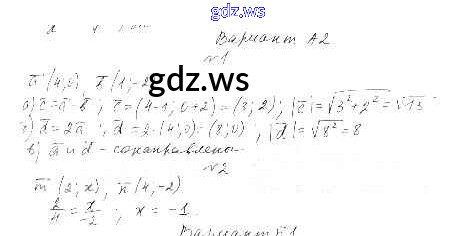 gdz.ws
Вариант А2
№1
ā (4;0), b̄ (1;-2)
gdz.ws
а) c̄ = ā - b̄ ; c̄ = (4-1; 0+2) = (3; 2); |c̄| = √3²+2² = √13
d̄ = 2ā ; d̄ = 2·(4;0) = (8;0) , |d̄| = √8² = 8
в) ā и d̄ - сонаправлены
№2
m̄ (2;x), n̄ (4,-2)
2/4 = x/-2 ; x = -1.
Вариант Б1